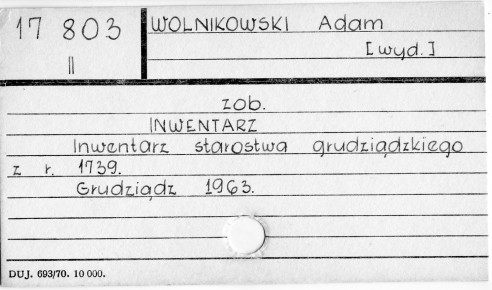 17 803
II
WOLNIKOWSKI Adam
[wyd.]
zob.
INWENTARZ
Inwentarz starostwa grudziądzkiego
z r. 1739.
Grudziądz 1963.
DUJ. 693/70. 10 000.